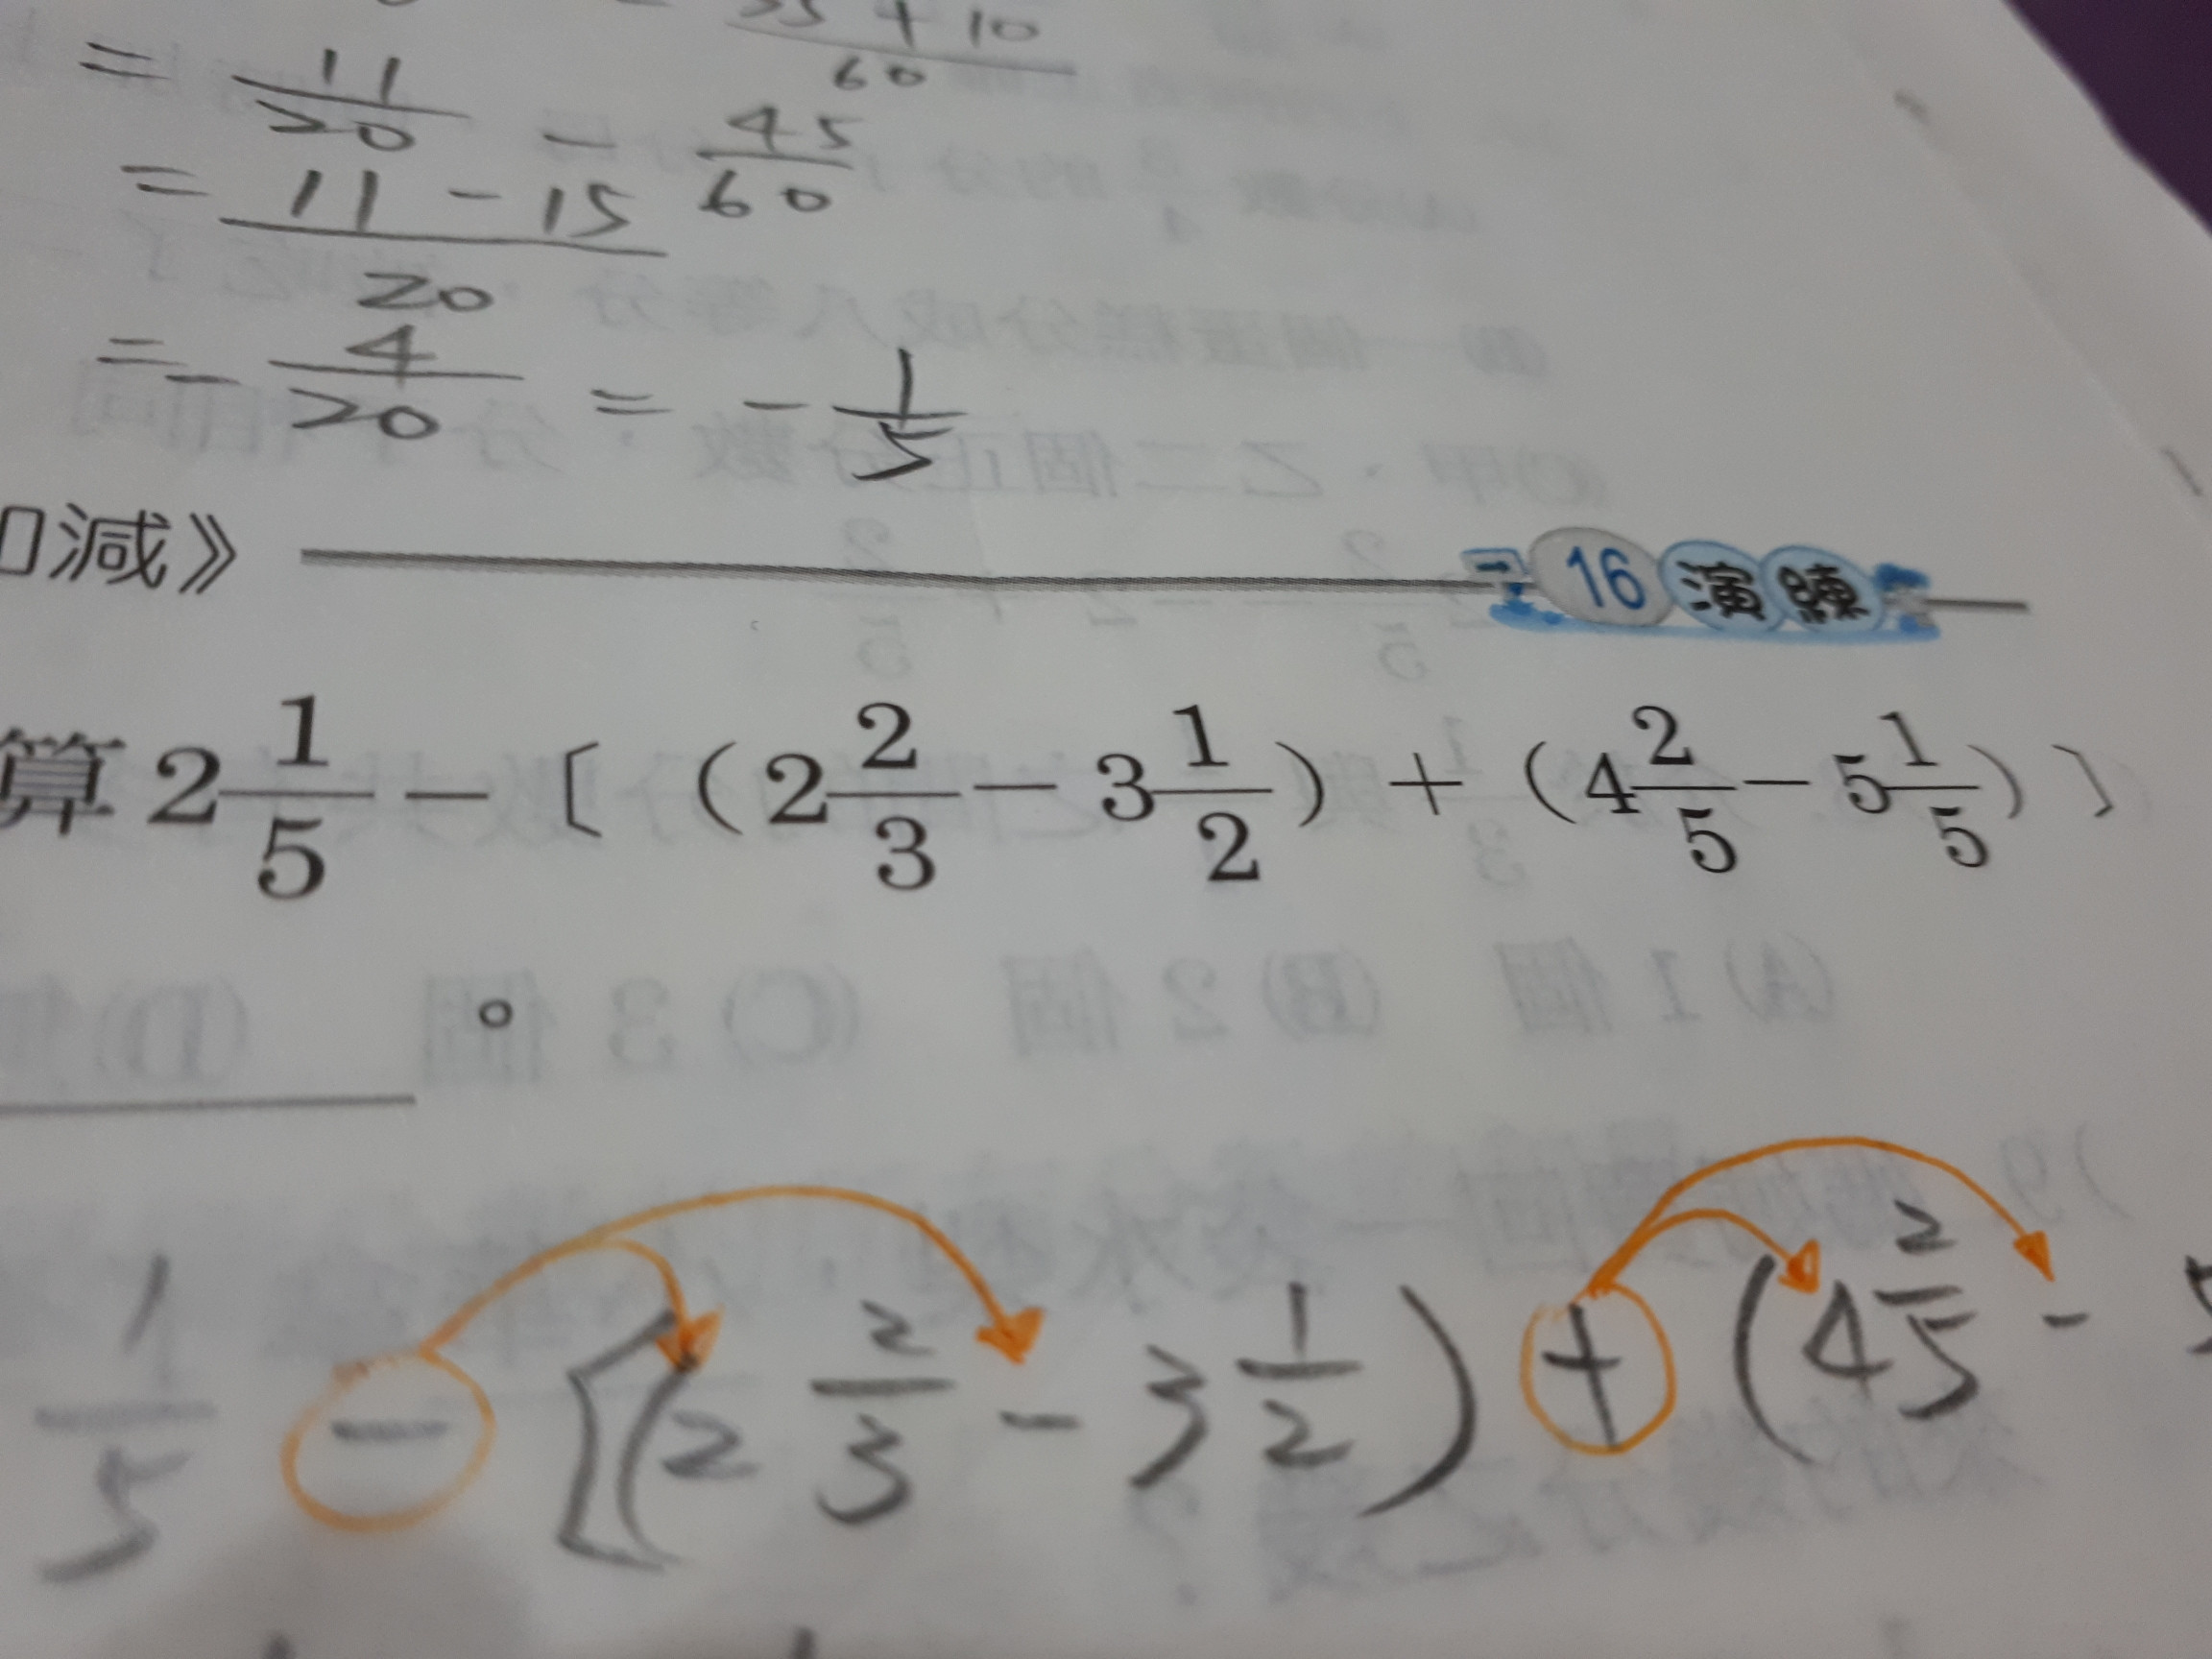 + 10
60
= 11/20 - 45/60
= (11 - 15)/20
= - 4/20 = - 1/5
減》
16 演練
算 2 1/5 - 〔 ( 2 2/3 - 3 1/2 ) + ( 4 2/5 - 5 1/5 ) 〕
。
1/5 - [( 2 2/3 - 3 1/2 ) + ( 4 2/5 -